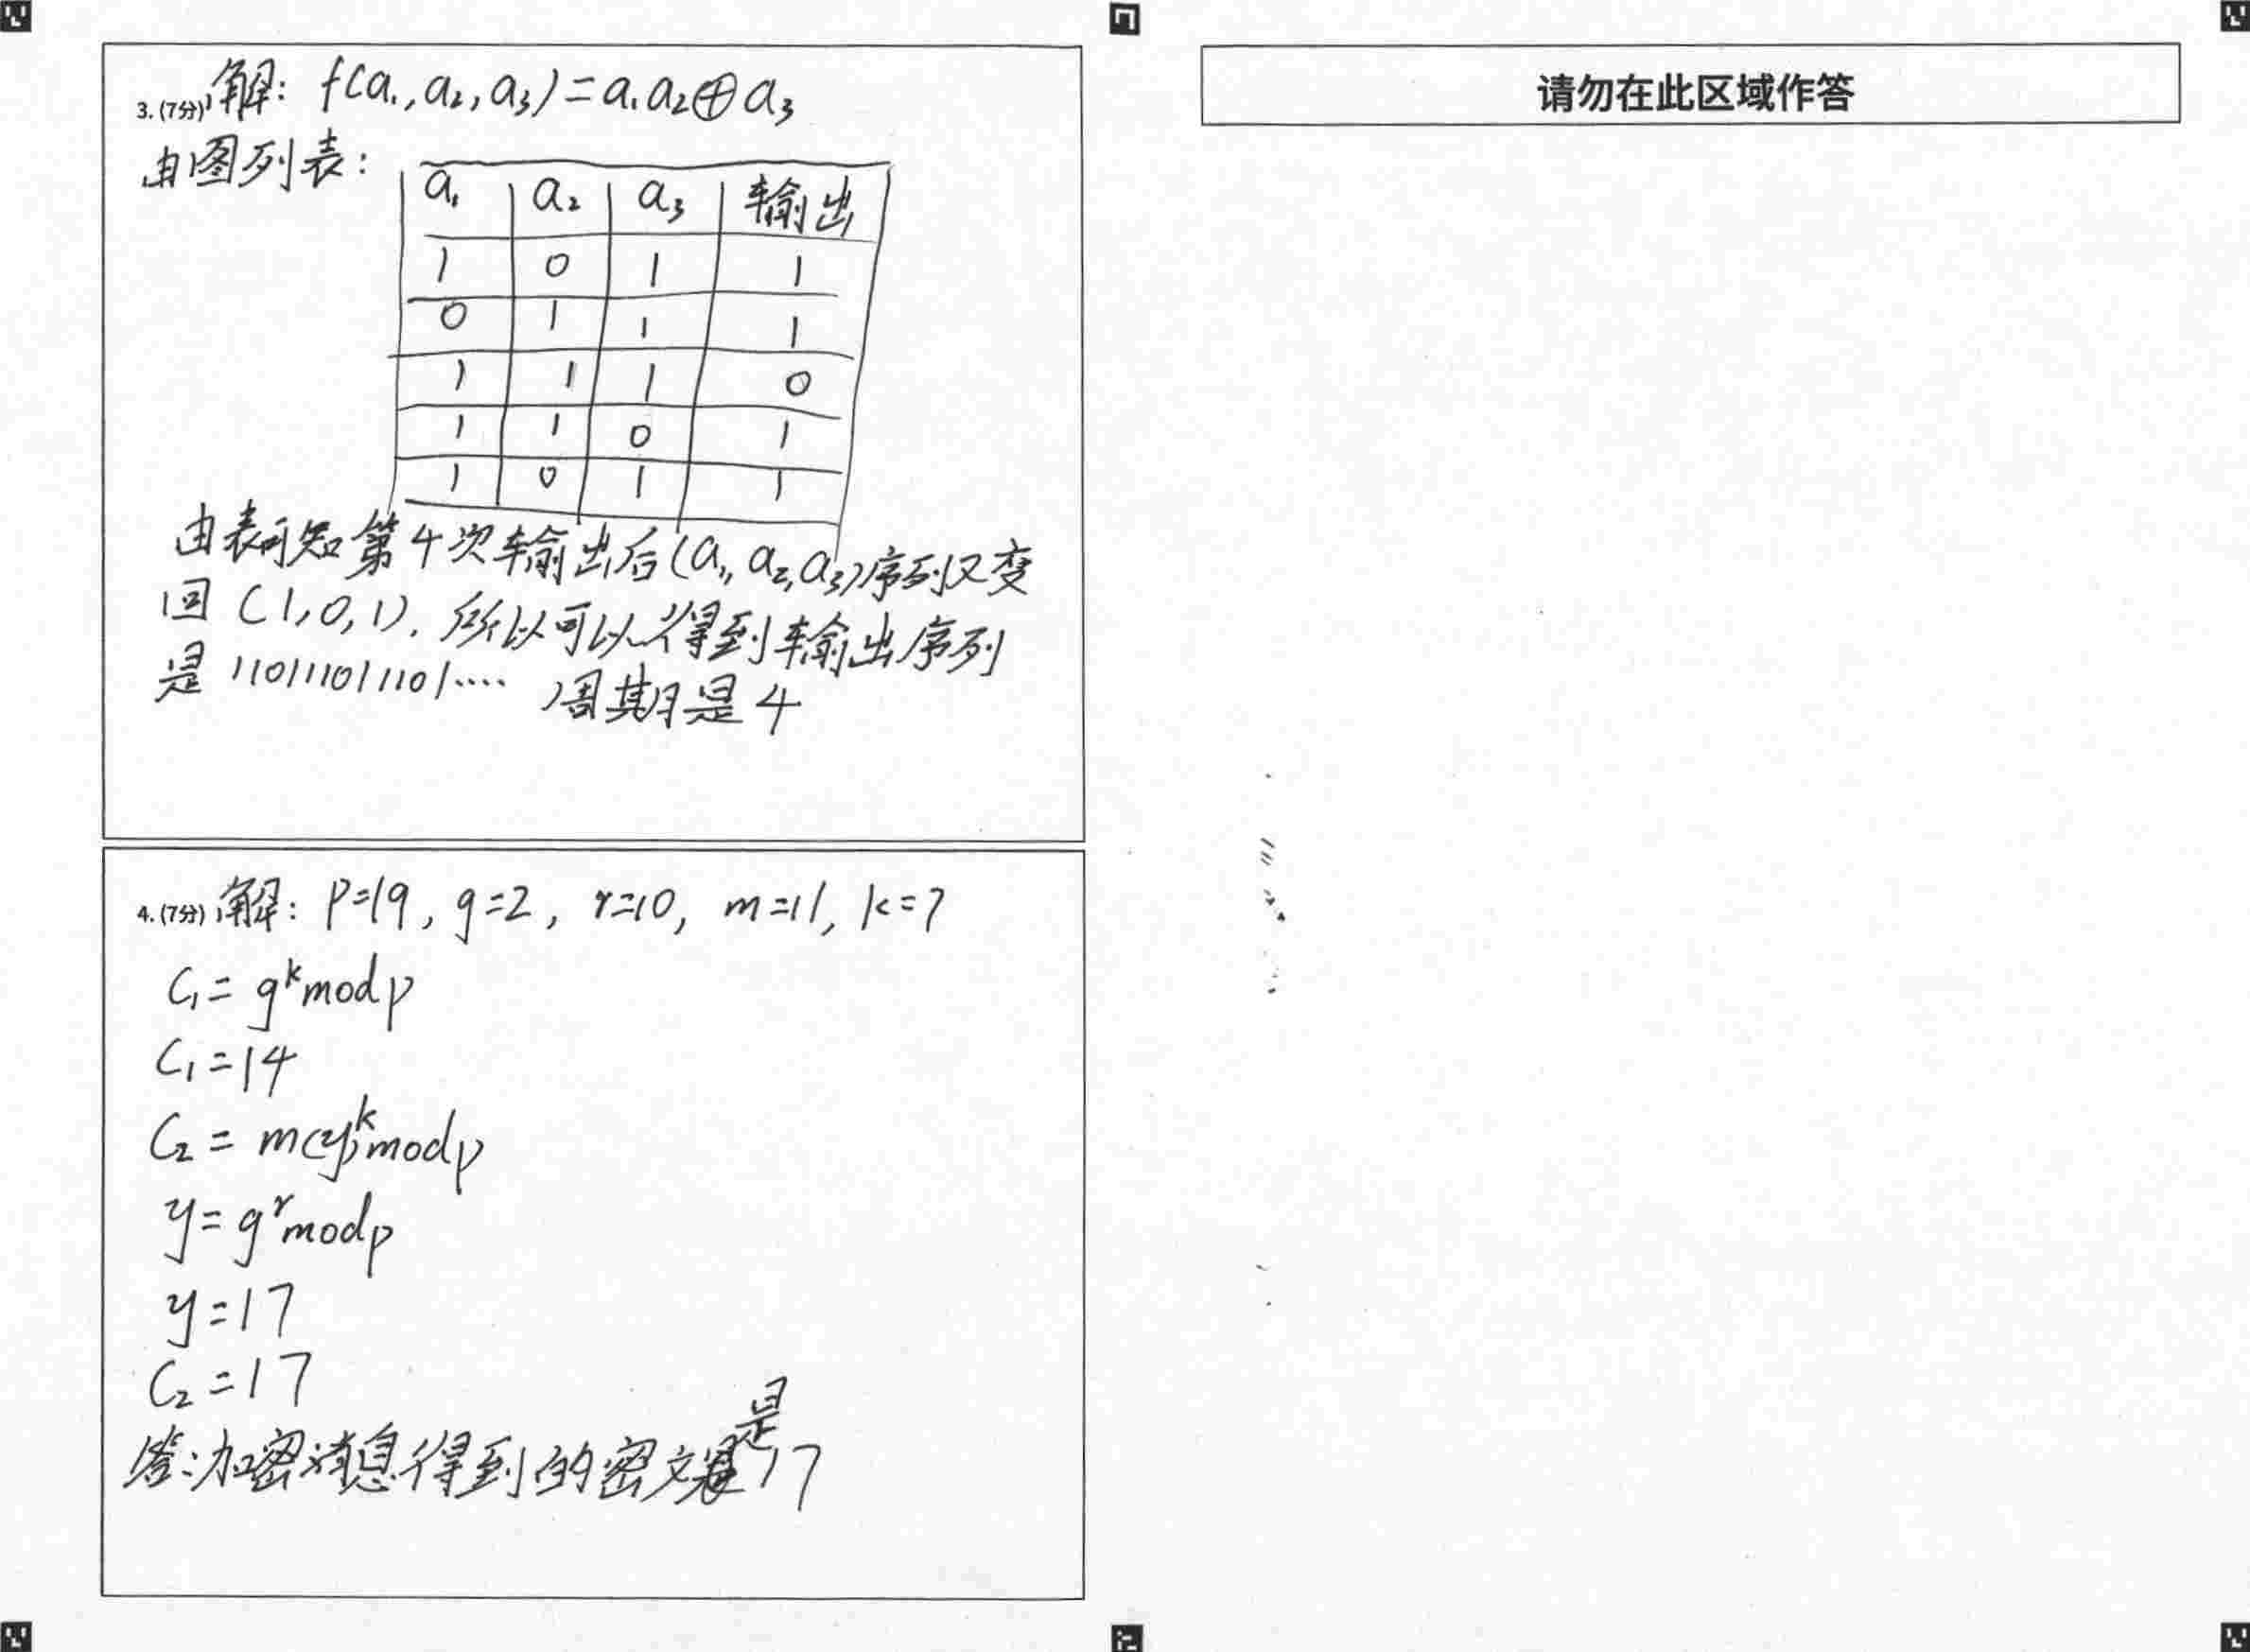 3. (7分) 解: f(a₁, a₂, a₃) = a₁a₂⊕a₃
由图列表:
a₁ a₂ a₃ 输出
1 0 1 1
0 1 1 1
1 1 1 0
1 1 0 1
1 0 1 1
由表可知第4次输出后(a₁, a₂, a₃)序列又变
回(1,0,1). 所以可以得到输出序列
是 110111011101···· 周期是4
4. (7分) 解: p=19, g=2, r=10, m=11, k=7
C₁ = gᵏ mod p
C₁ = 14
C₂ = m(y)ᵏ mod p
y = gʳ mod p
y = 17
C₂ = 17
答:加密消息得到的密文是17
请勿在此区域作答